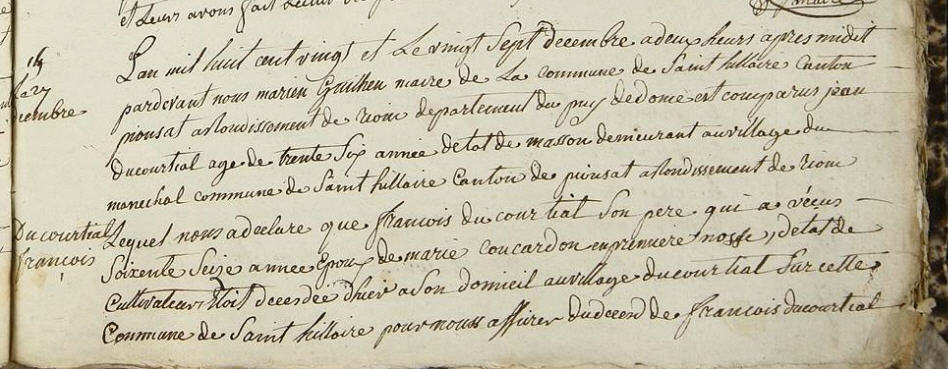 et leurs avons fait lecture
Lan mil huit cent vingt et Le vingt Sept decembre a deux heurs apres midit
19
La 27
decembre
pardevant nous marien Guilhen maire de La commune de Saint hillaire Canton
pionsat astondissement de riom departement du puy dedome est comparus jean
ducourtial age de trente Six année detat de masson demeurant auvillage du
marechal commune de Saint hillaire Canton de pionsat astondissement de riom
Ducourtial
françois
Lequel nous adeclare que françois du courtial Son pere qui a vécus
Soixente Seize année Epoux de marie coucardon enpremiere nosse, detat de
Cultivateur Etoit decendée dhier aSon domicil auvillage ducourtial Sur cette
Commune de Saint hillaire pour nouss assurer dudecend de françois ducourtial